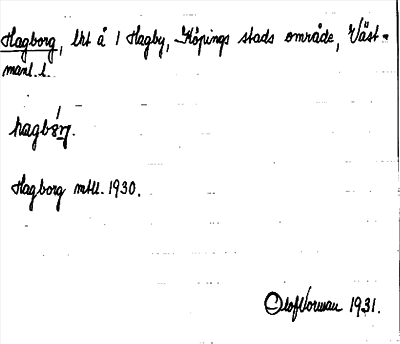 Hagborg, lht å 1 Hagby, Köpings stads område, Väst-
manl. l.
Hagborg mtll. 1930.
Olof Norman 1931.